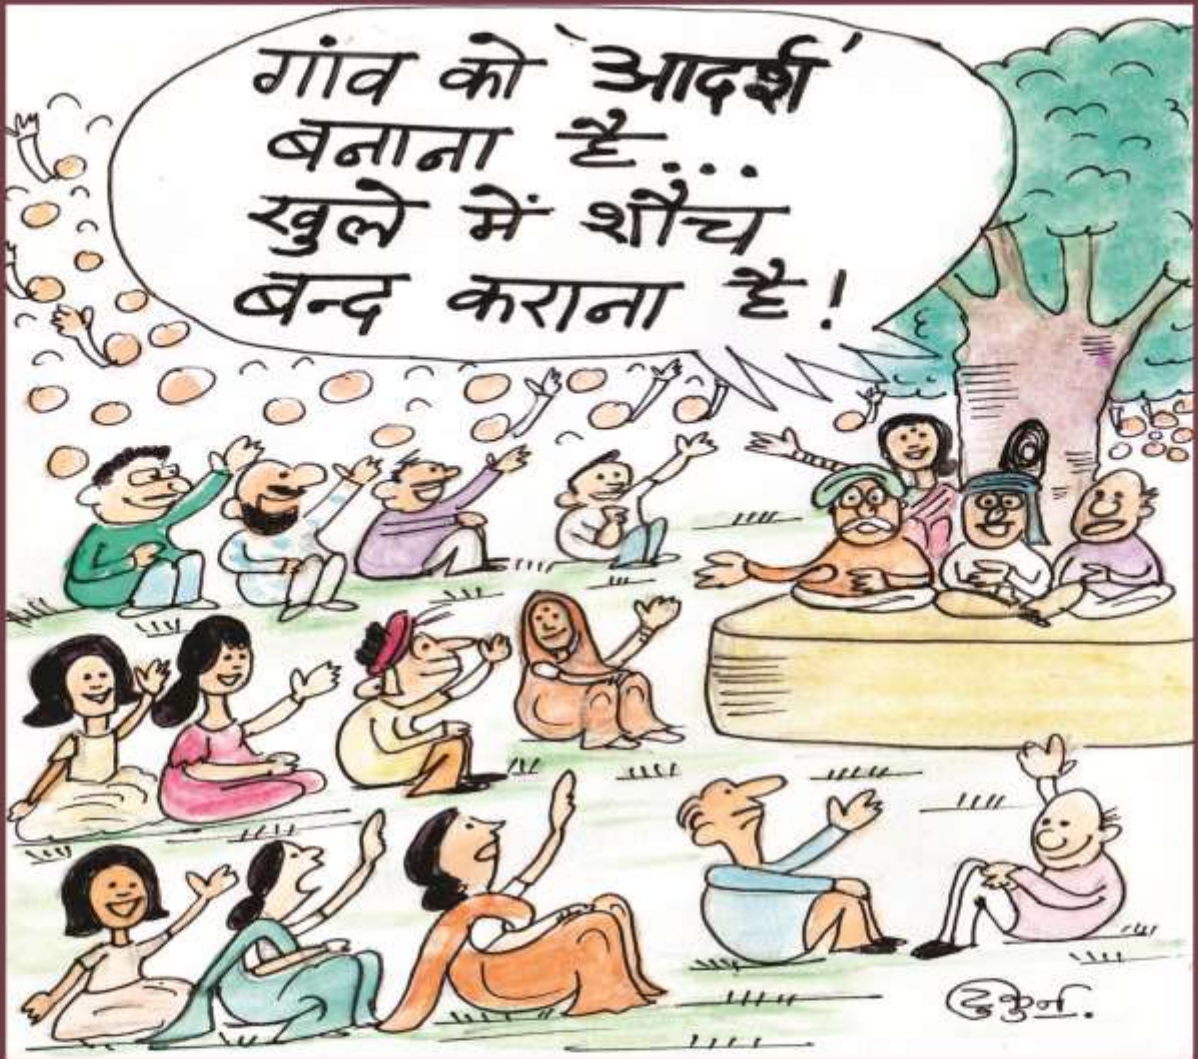 गांव को 'आदर्श'
बनाना है...
खुले में शौच
बन्द कराना है!